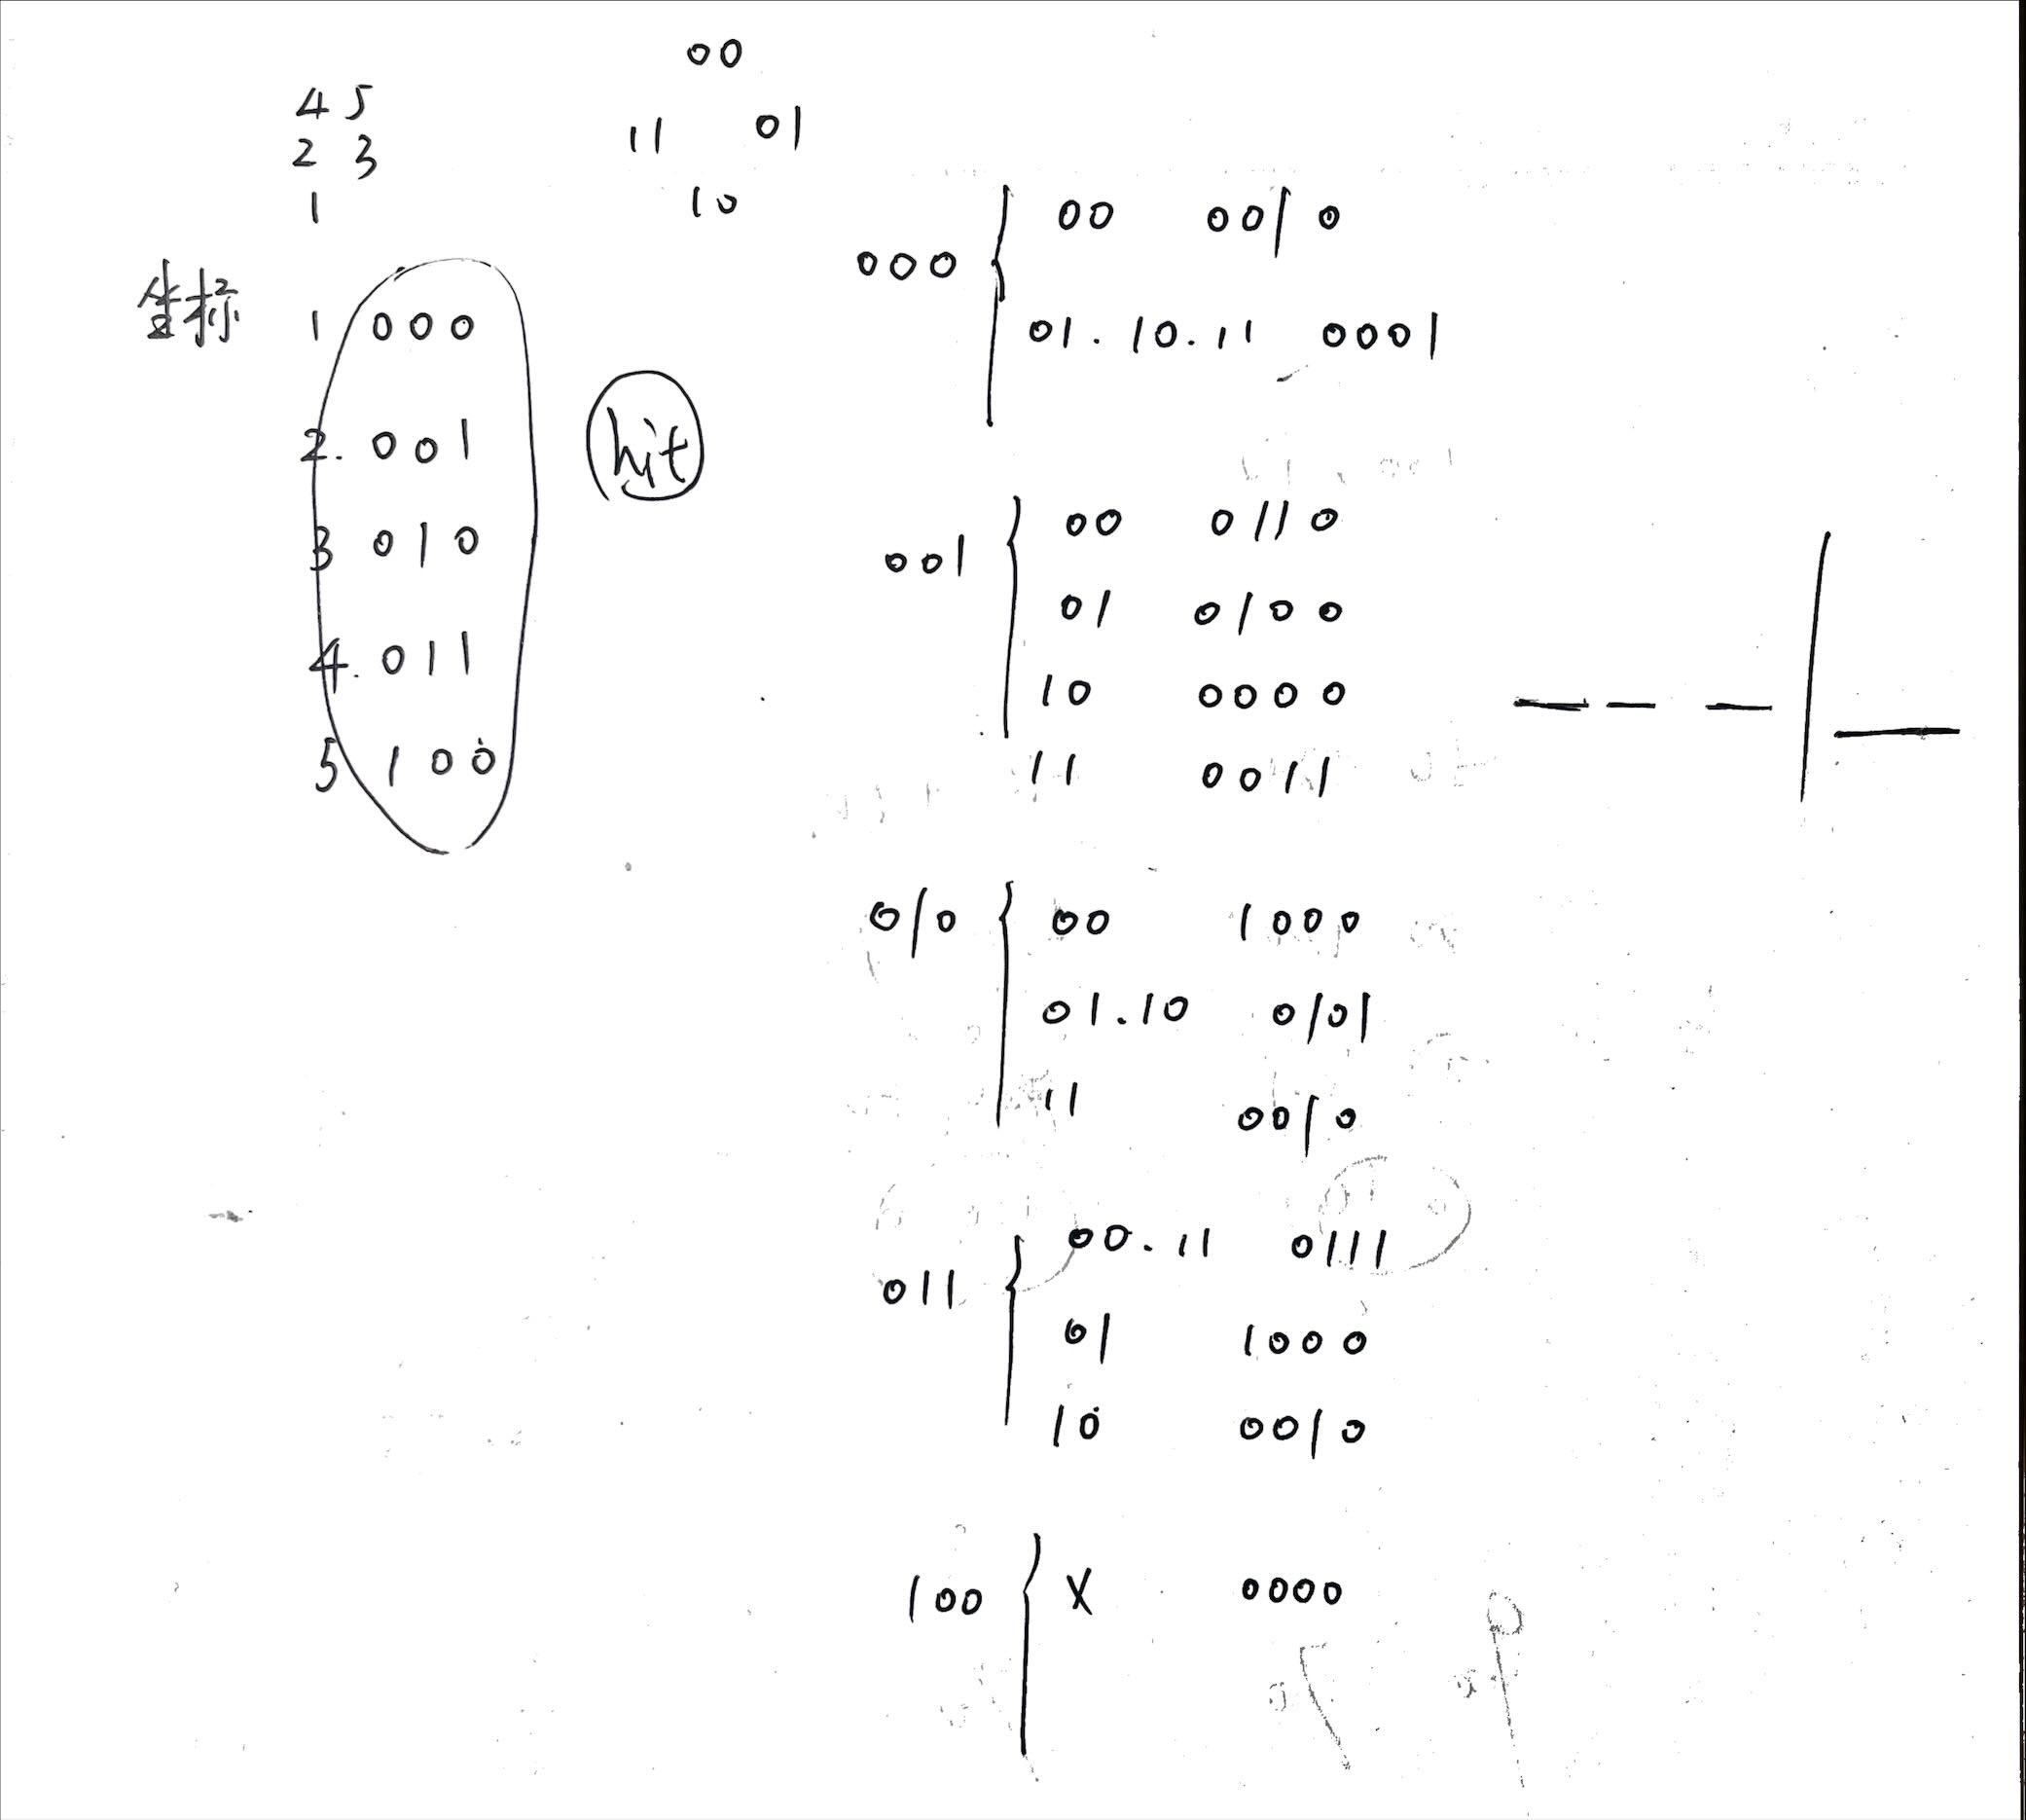 4 5
2 3
1
坐标
1 000
2. 001
3 010
4. 011
5 100
00
11 01
10
hit
000
00 0010
01.10.11 0001
001
00 0110
01 0100
10 0000
11 0011
010
00 1000
01.10 0101
11 0010
011
00.11 0111
01 1000
10 0010
100
X 0000